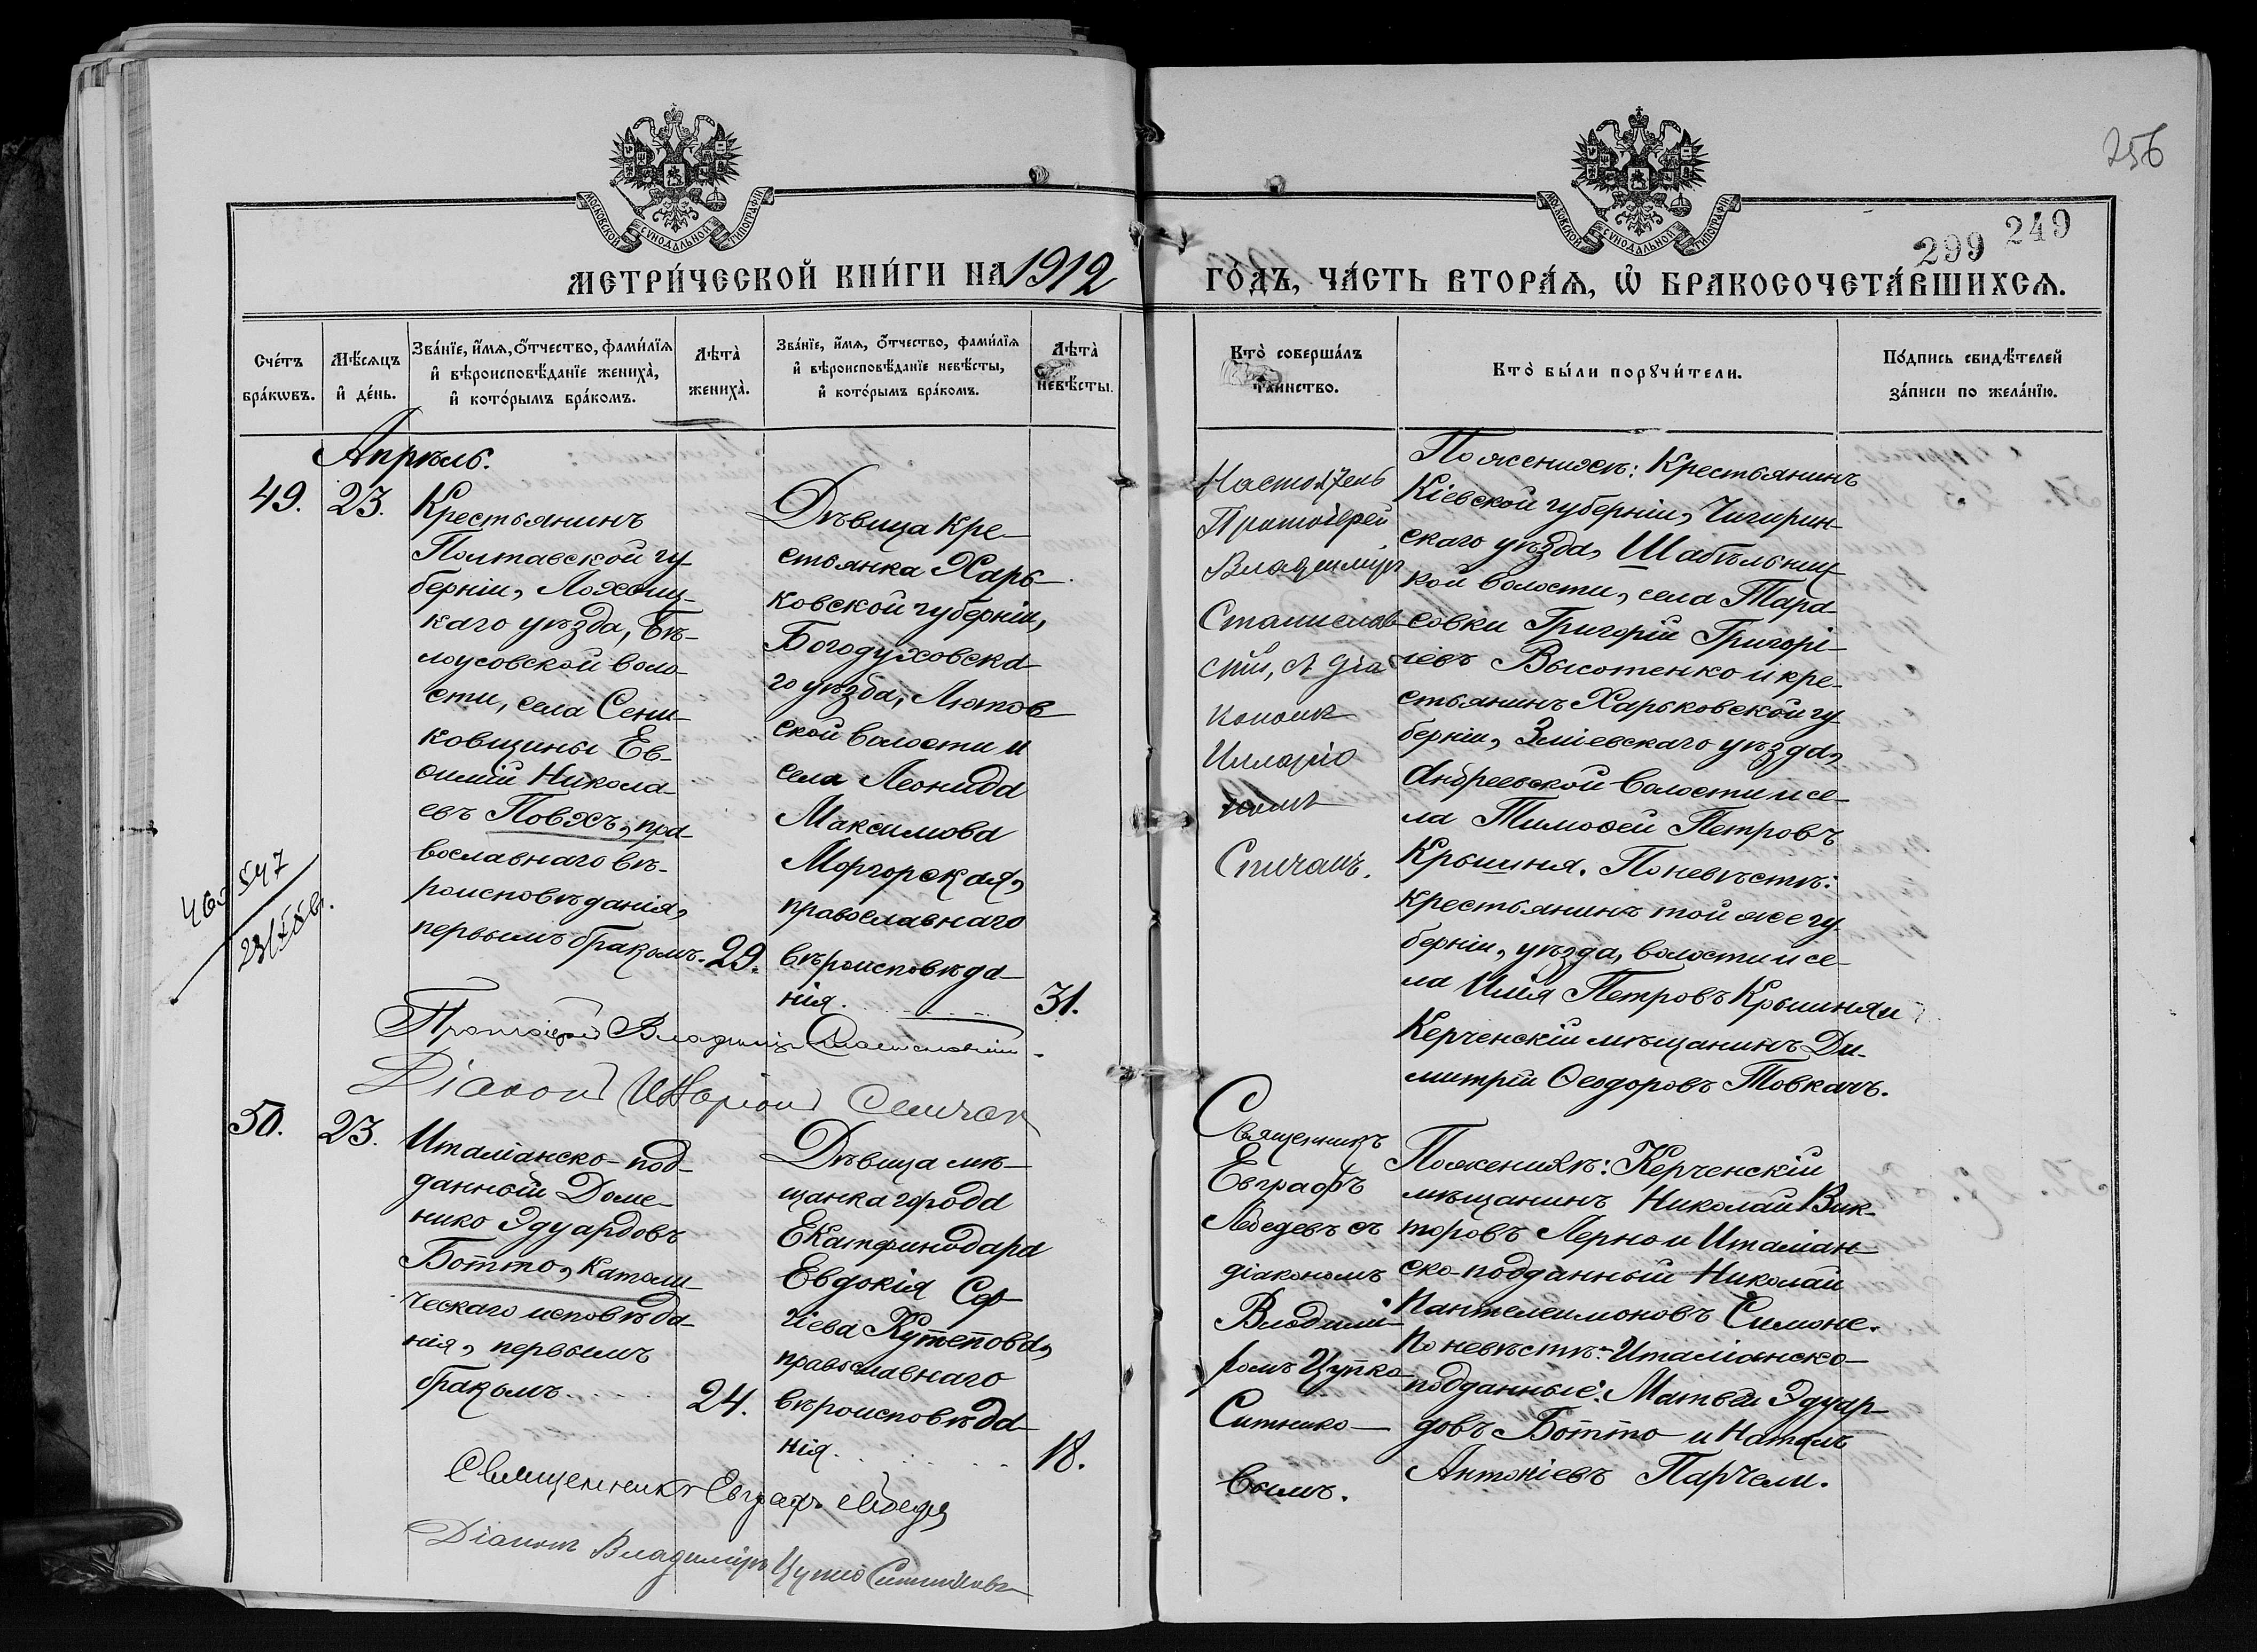 256
299 249
МОСКОВСКОЙ СУНОДАЛЬНОЙ ТИПОГРАФІИ
МОСКОВСКОЙ СУНОДАЛЬНОЙ ТИПОГРАФІИ
МЕТРИ́ЧЕСКОЙ КНИ́ГИ НА 1912 ГО́ДЪ, ЧА́СТЬ ВТОРА́Ѧ, Ѽ БРАКОСОЧЕТА́ВШИХСѦ.
Сче́тъ бра́кѡвъ.
Мѣ́сѧцъ и҆ де́нь.
Зва́нїе, и҆́мѧ, ѻ҆́тчество, фами́лїѧ
и҆ вѣроисповѣ́данїе жениха̀,
и҆ кото́рымъ бра́комъ.
Лѣта̀ жениха̀.
Зва́нїе, и҆́мѧ, ѻ҆́тчество, фами́лїѧ
и҆ вѣроисповѣ́данїе невѣ́сты,
и҆ кото́рымъ бра́комъ.
Лѣта̀ невѣ́сты.
Кто̀ соверша́лъ таинство.
Кто̀ бы́ли порꙋчи́тели.
По́дпись свидѣ́телей за́писи по жела́нїю.
Апрѣль.
49.
23.
Крестьянинъ
Полтавской гу-
берніи, Лохвиц-
каго уѣзда, Бѣ-
лоусовской воло-
сти, села Сени-
ковщины Ев-
ѳимій Никола-
евъ Повхъ, пра-
вославнаго вѣ-
роисповѣданія,
первымъ бракомъ. 29.
Дѣвица кре-
стьянка Харь-
ковской губерніи,
Богодуховска-
го уѣзда, Лютов-
ской волости и
села Леонида
Максимова
Моргорская,
православнаго
вѣроисповѣда-
нія.
31.
Настоятель
Протоіерей
Владиміръ
Станислав-
скій, съ діа
кономъ
Илларіо
номъ
Спичакъ.
По женихѣ: Крестьянинъ
Кіевской губерніи, Чигирин-
скаго уѣзда, Шабѣльниц-
кой волости, села Тара-
совки Григорій Григорі-
евъ Высотенко и кре-
стьянинъ Харьковской гу-
берніи, Зміевскаго уѣзда,
Андреевской волости и се-
ла Тимоѳей Петровъ
Крышня. По невѣстѣ:
Крестьянинъ той же гу-
берніи, уѣзда, волости и се-
ла Илія Петровъ Крышня и
Керченскій мѣщанинъ Ди-
митрій Ѳеодоровъ Товкачъ.
547
Протоіерей Владиміръ Станиславскій.
Діаконъ Илларіонъ Спичакъ
50.
23.
Италіанско-под-
данный Доме-
нико Эдуардовъ
Ботто, католи-
ческаго исповѣда-
нія, первымъ
бракомъ.
24.
Дѣвица мѣ-
щанка города
Екатеринодара
Евдокія Сер-
гіева Кутепова,
православнаго
вѣроисповѣда-
нія.
18.
Священникъ
Евграфъ
Лебедевъ съ
діакономъ
Владимі-
ромъ Цупко
Ситнико-
вымъ.
По женихѣ: Керченскій
мѣщанинъ Николай Вик-
торовъ Лерно и Италіан-
ско-подданный Николай
Пантелеимоновъ Симоне.
По невѣстѣ: Италіанско-
подданные: Матвѣй Эдуар-
довъ Ботто и Наталъ
Антоніевъ Парчели.
Священникъ Евграфъ Лебедевъ
Діаконъ Владиміръ Цупко Ситниковъ